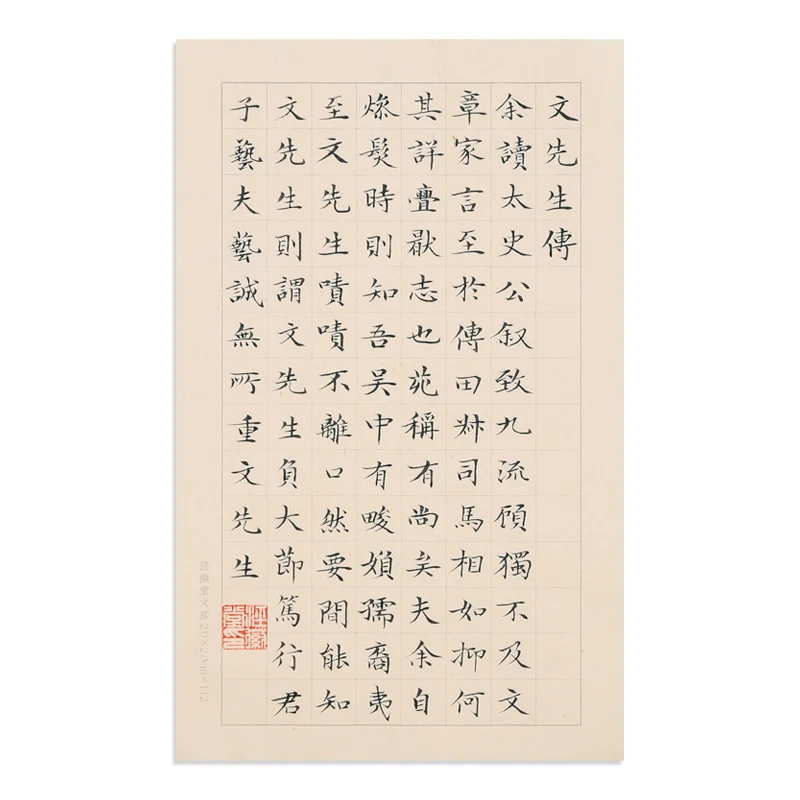 文先生傳
余讀太史公叙致九流頋獨不及文
章家言至於傳田叔司馬相如抑何
其詳疊猒志也苑稱有尚矣夫余自
燥髮時則知吾吴中有畯媍孺裔夷
至文先生嘖嘖不離口然要間能知
文先生則謂文先生負大節篤行君
子藝夫藝誠無所重文先生